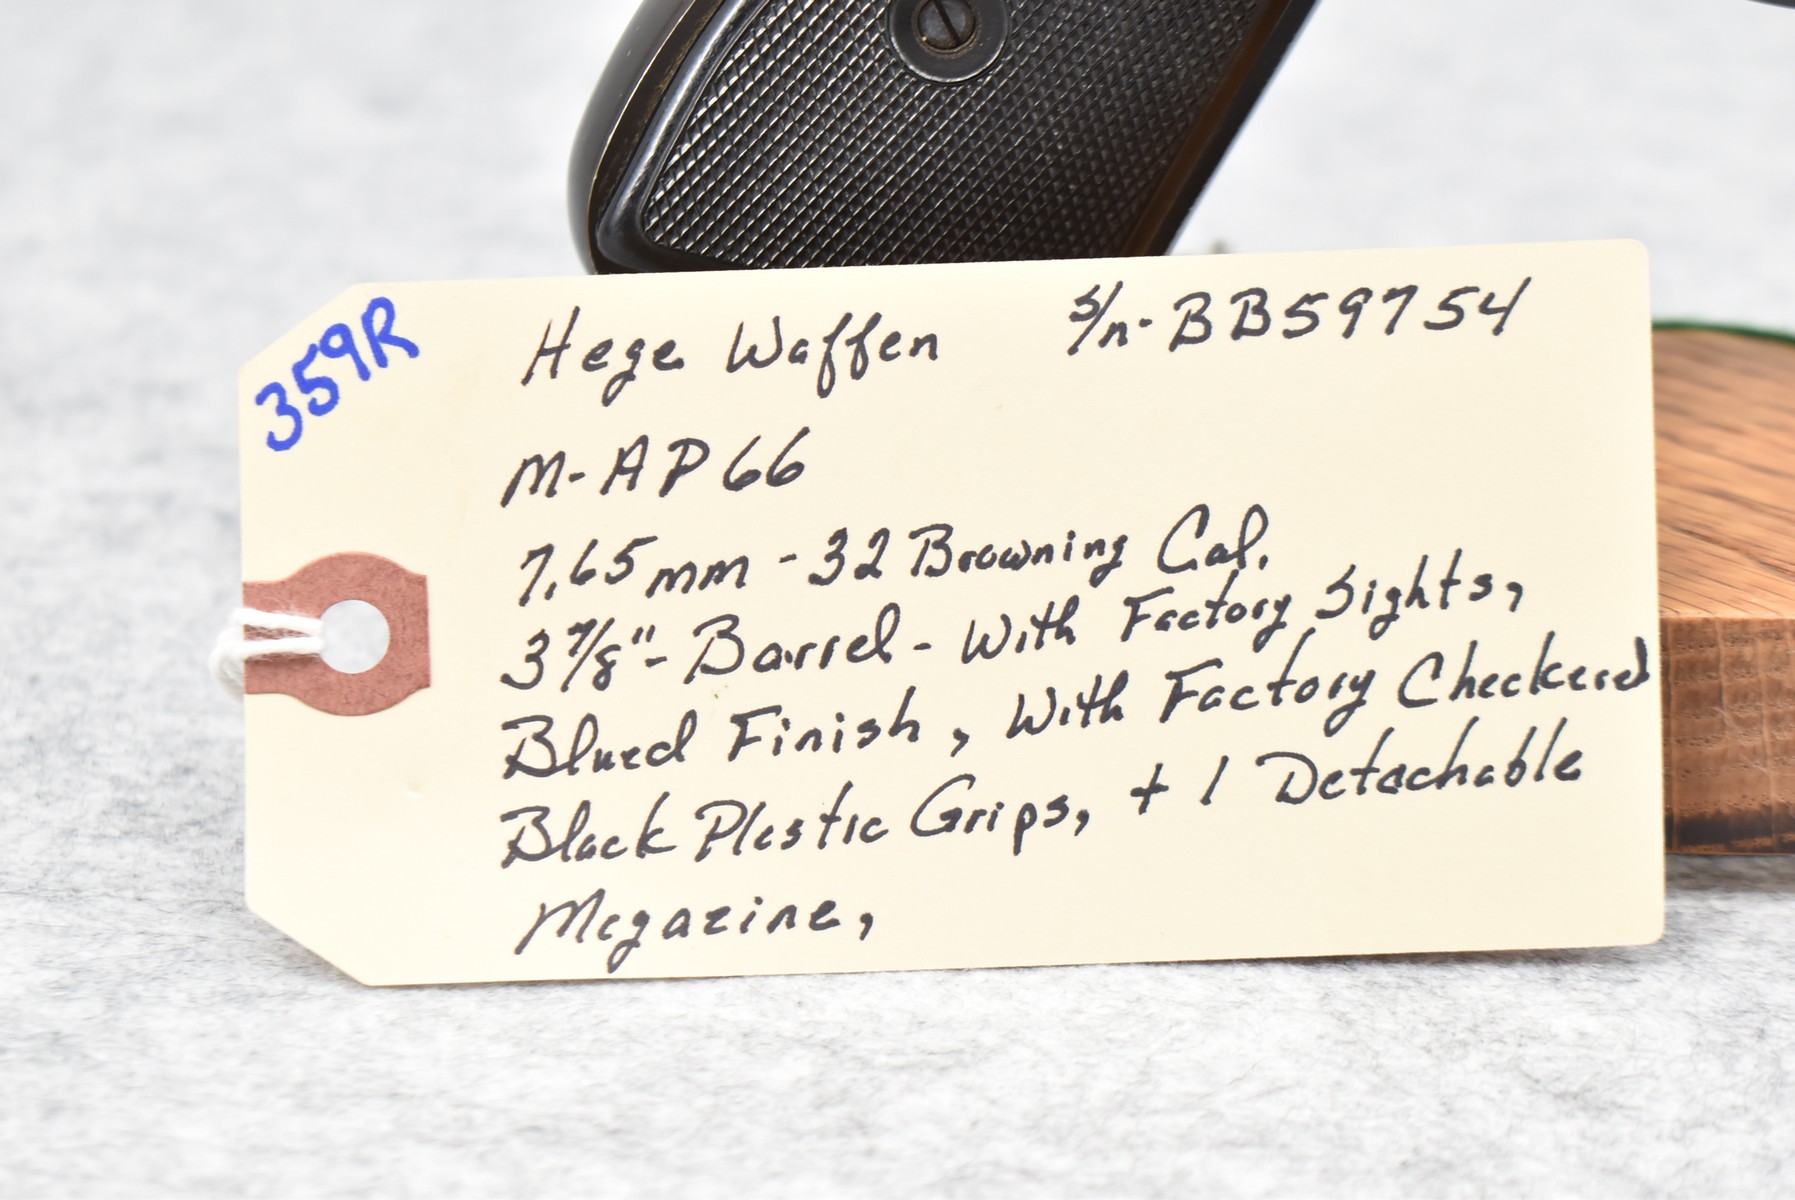 359R
Hege Waffen s/n-BB59754
M-AP66
7.65mm - 32 Browning Cal.
3 7/8" - Barrel - With Factory Sights,
Blued Finish, With Factory Checkered
Black Plastic Grips, + 1 Detachable
Magazine,